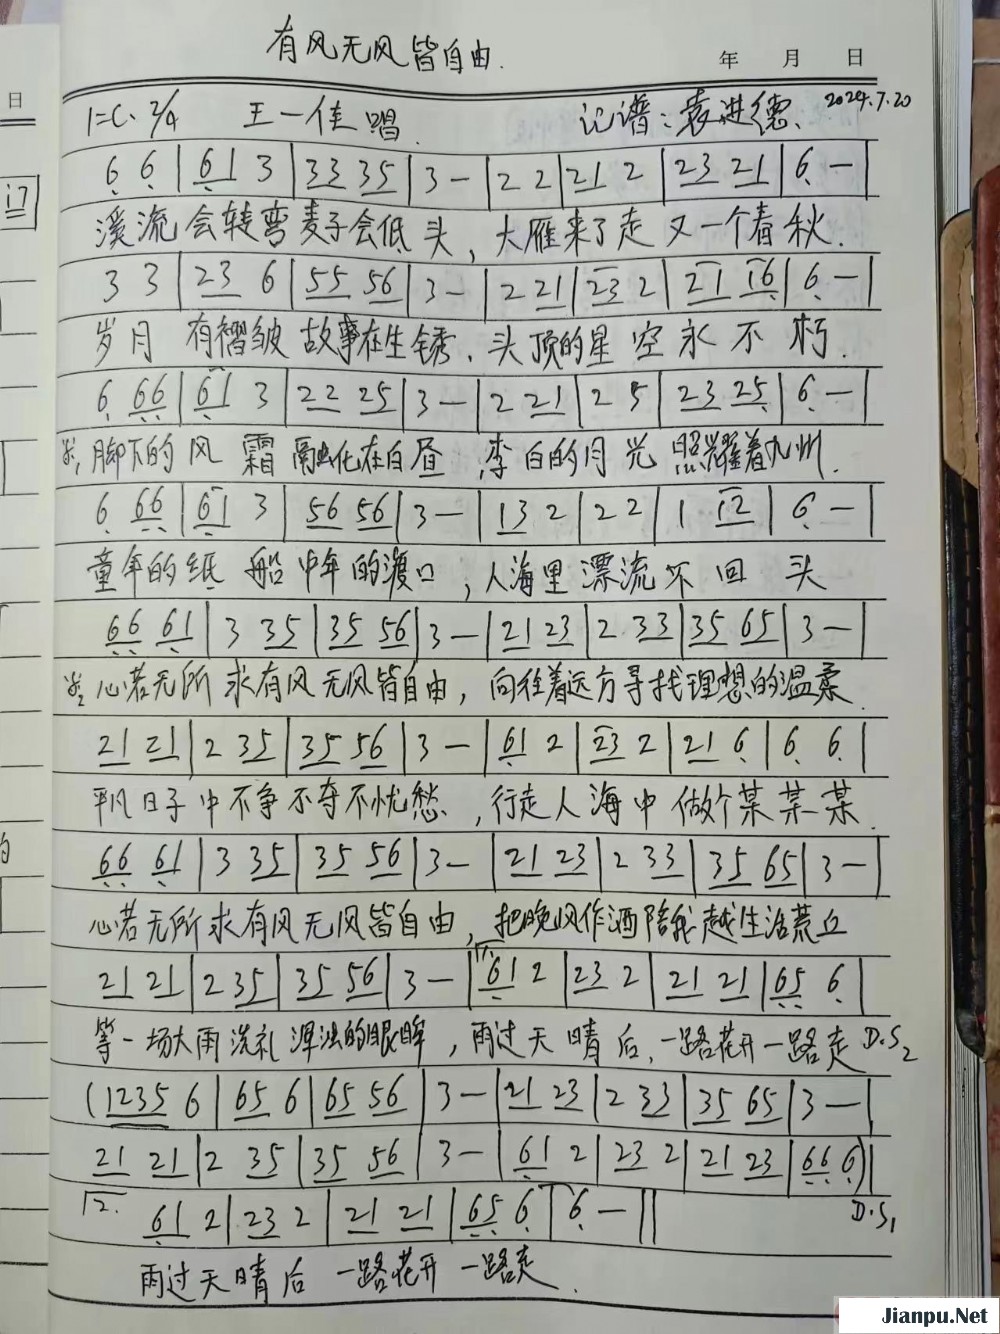 有风无风皆自由.
年 月 日
日
1=C. 2/4 王一佳唱. 记谱:袁进德. 2024.7.20
6 6 | 61 3 | 33 35 | 3 - | 2 2 | 21 2 | 23 21 | 6 - |
i7
溪流会转弯麦子会低头,大雁来了走又一个春秋.
3 3 | 23 6 | 55 56 | 3 - | 2 21 | 23 2 | 21 16 | 6 - |
岁月有褶皱故事在生锈.头顶的星空永不朽.
6 66 | 61 3 | 22 25 | 3 - | 2 21 | 2 5 | 23 25 | 6 - |
脚下的风霜融化在白昼,李白的月光照耀着九州.
6 66 | 61 3 | 56 56 | 3 - | 13 2 | 2 2 | 1 12 | 6 - |
童年的纸船中年的渡口,人海里漂流不回头
66 61 | 3 35 | 35 56 | 3 - | 21 23 | 2 33 | 35 65 | 3 - |
心若无所求有风无风皆自由,向往着远方寻找理想的温柔.
21 21 | 2 35 | 35 56 | 3 - | 61 2 | 23 2 | 21 6 | 6 6 |
平凡日子中不争不夺不忧愁,行走人海中做个某某某.
66 61 | 3 35 | 35 56 | 3 - | 21 23 | 2 33 | 35 65 | 3 - |
心若无所求有风无风皆自由,把晚风作酒陪我越生活荒丘
21 21 | 2 35 | 35 56 | 3 - | 1. 61 2 | 23 2 | 21 21 | 65 6 |
等一场大雨洗礼浑浊的眼眸,雨过天晴后,一路花开一路走 D.S2
(1235 6 | 65 6 | 65 56 | 3 - | 21 23 | 2 33 | 35 65 | 3 - |
21 21 | 2 35 | 35 56 | 3 - | 61 2 | 23 2 | 21 23 | 66 6)||
2. 61 2 | 23 2 | 21 21 | 65 6 | 6 - || D.S1
雨过天晴后 一路花开一路走.
Jianpu.Net